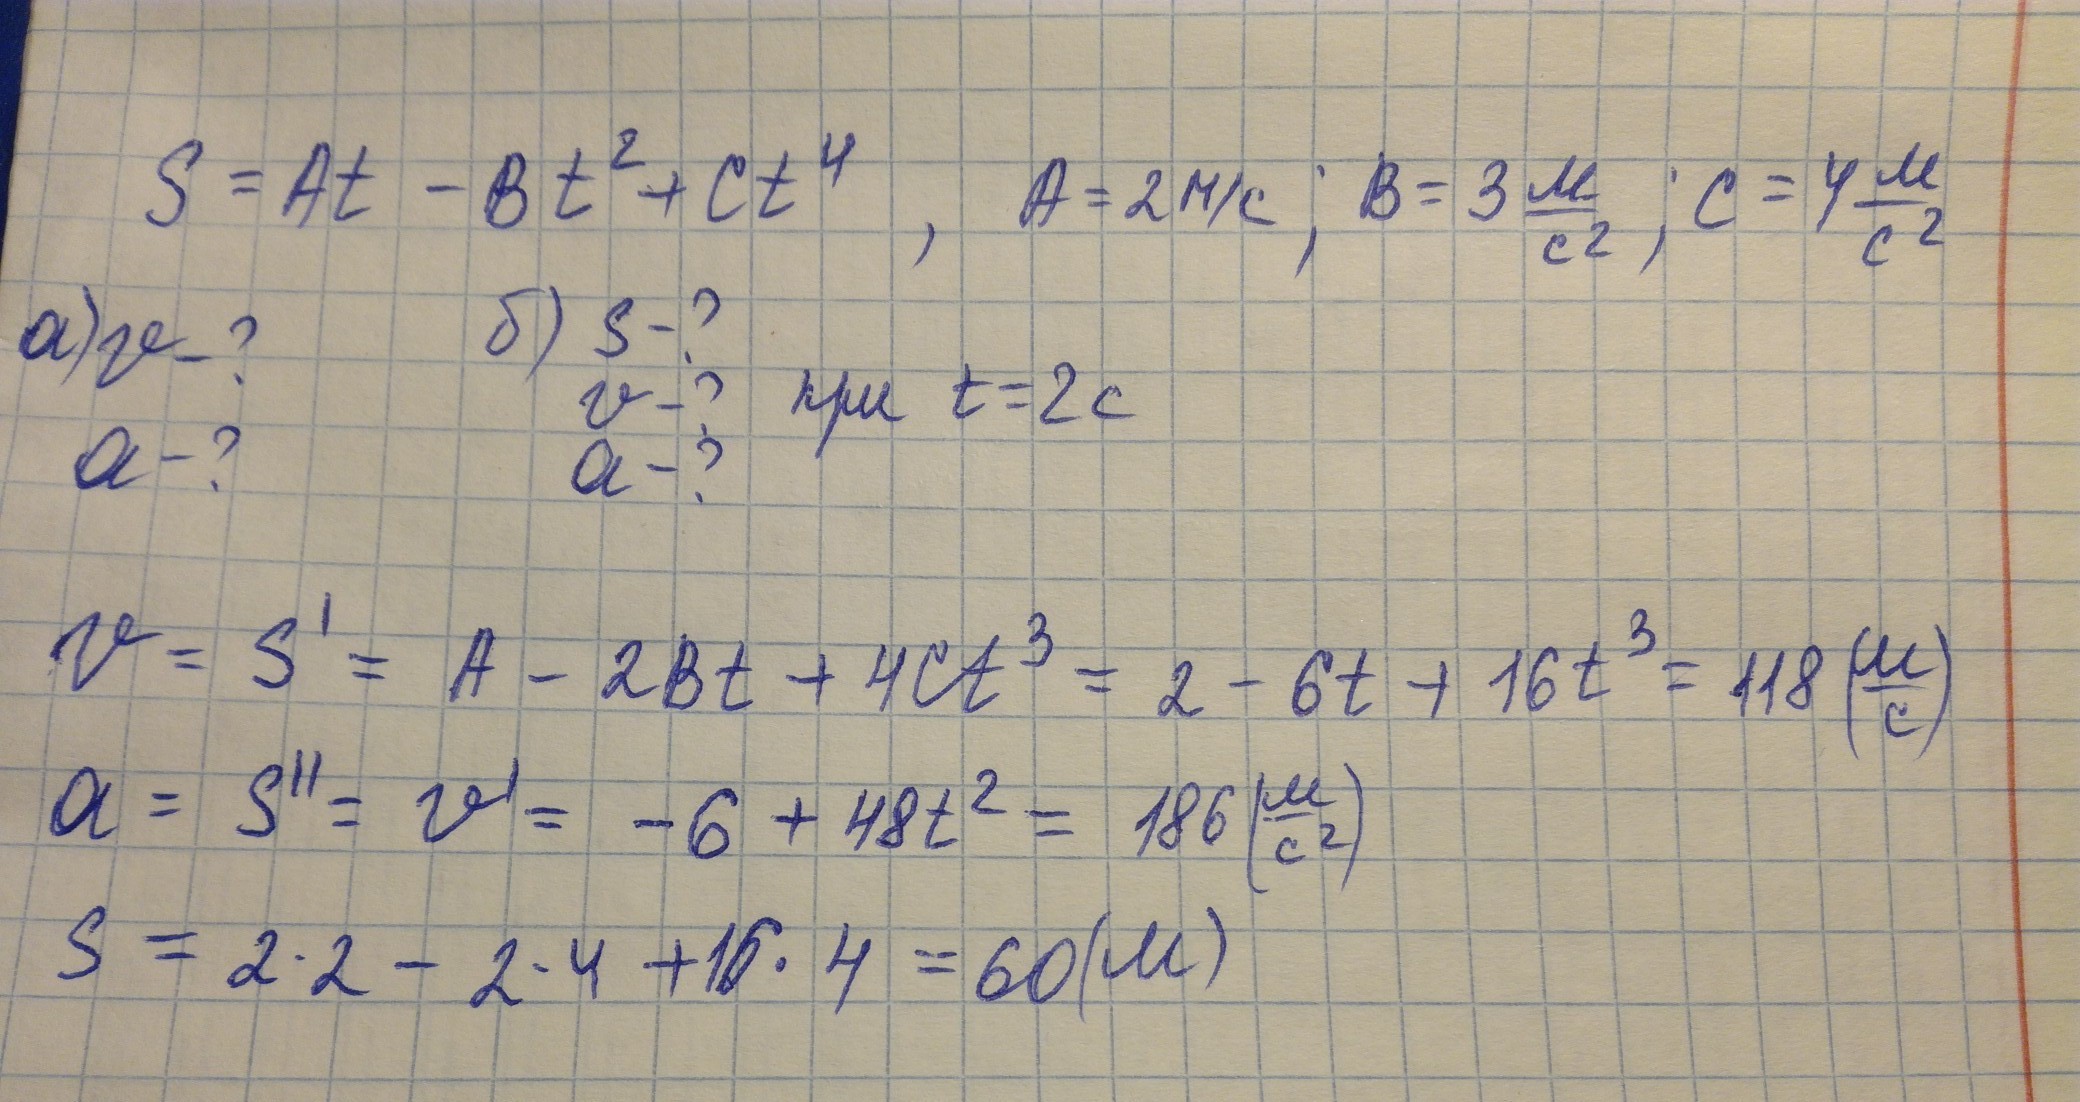 S = At - Bt² + Ct⁴, A = 2 м/с; B = 3 м/с²; C = 4 м/с²
а) v - ? б) s - ?
v - ? при t = 2 c
a - ? a - ?
v = S' = A - 2Bt + 4Ct³ = 2 - 6t + 16t³ = 118 (м/с)
a = S'' = v' = -6 + 48t² = 186 (м/с²)
S = 2·2 - 2·4 + 16·4 = 60 (м)